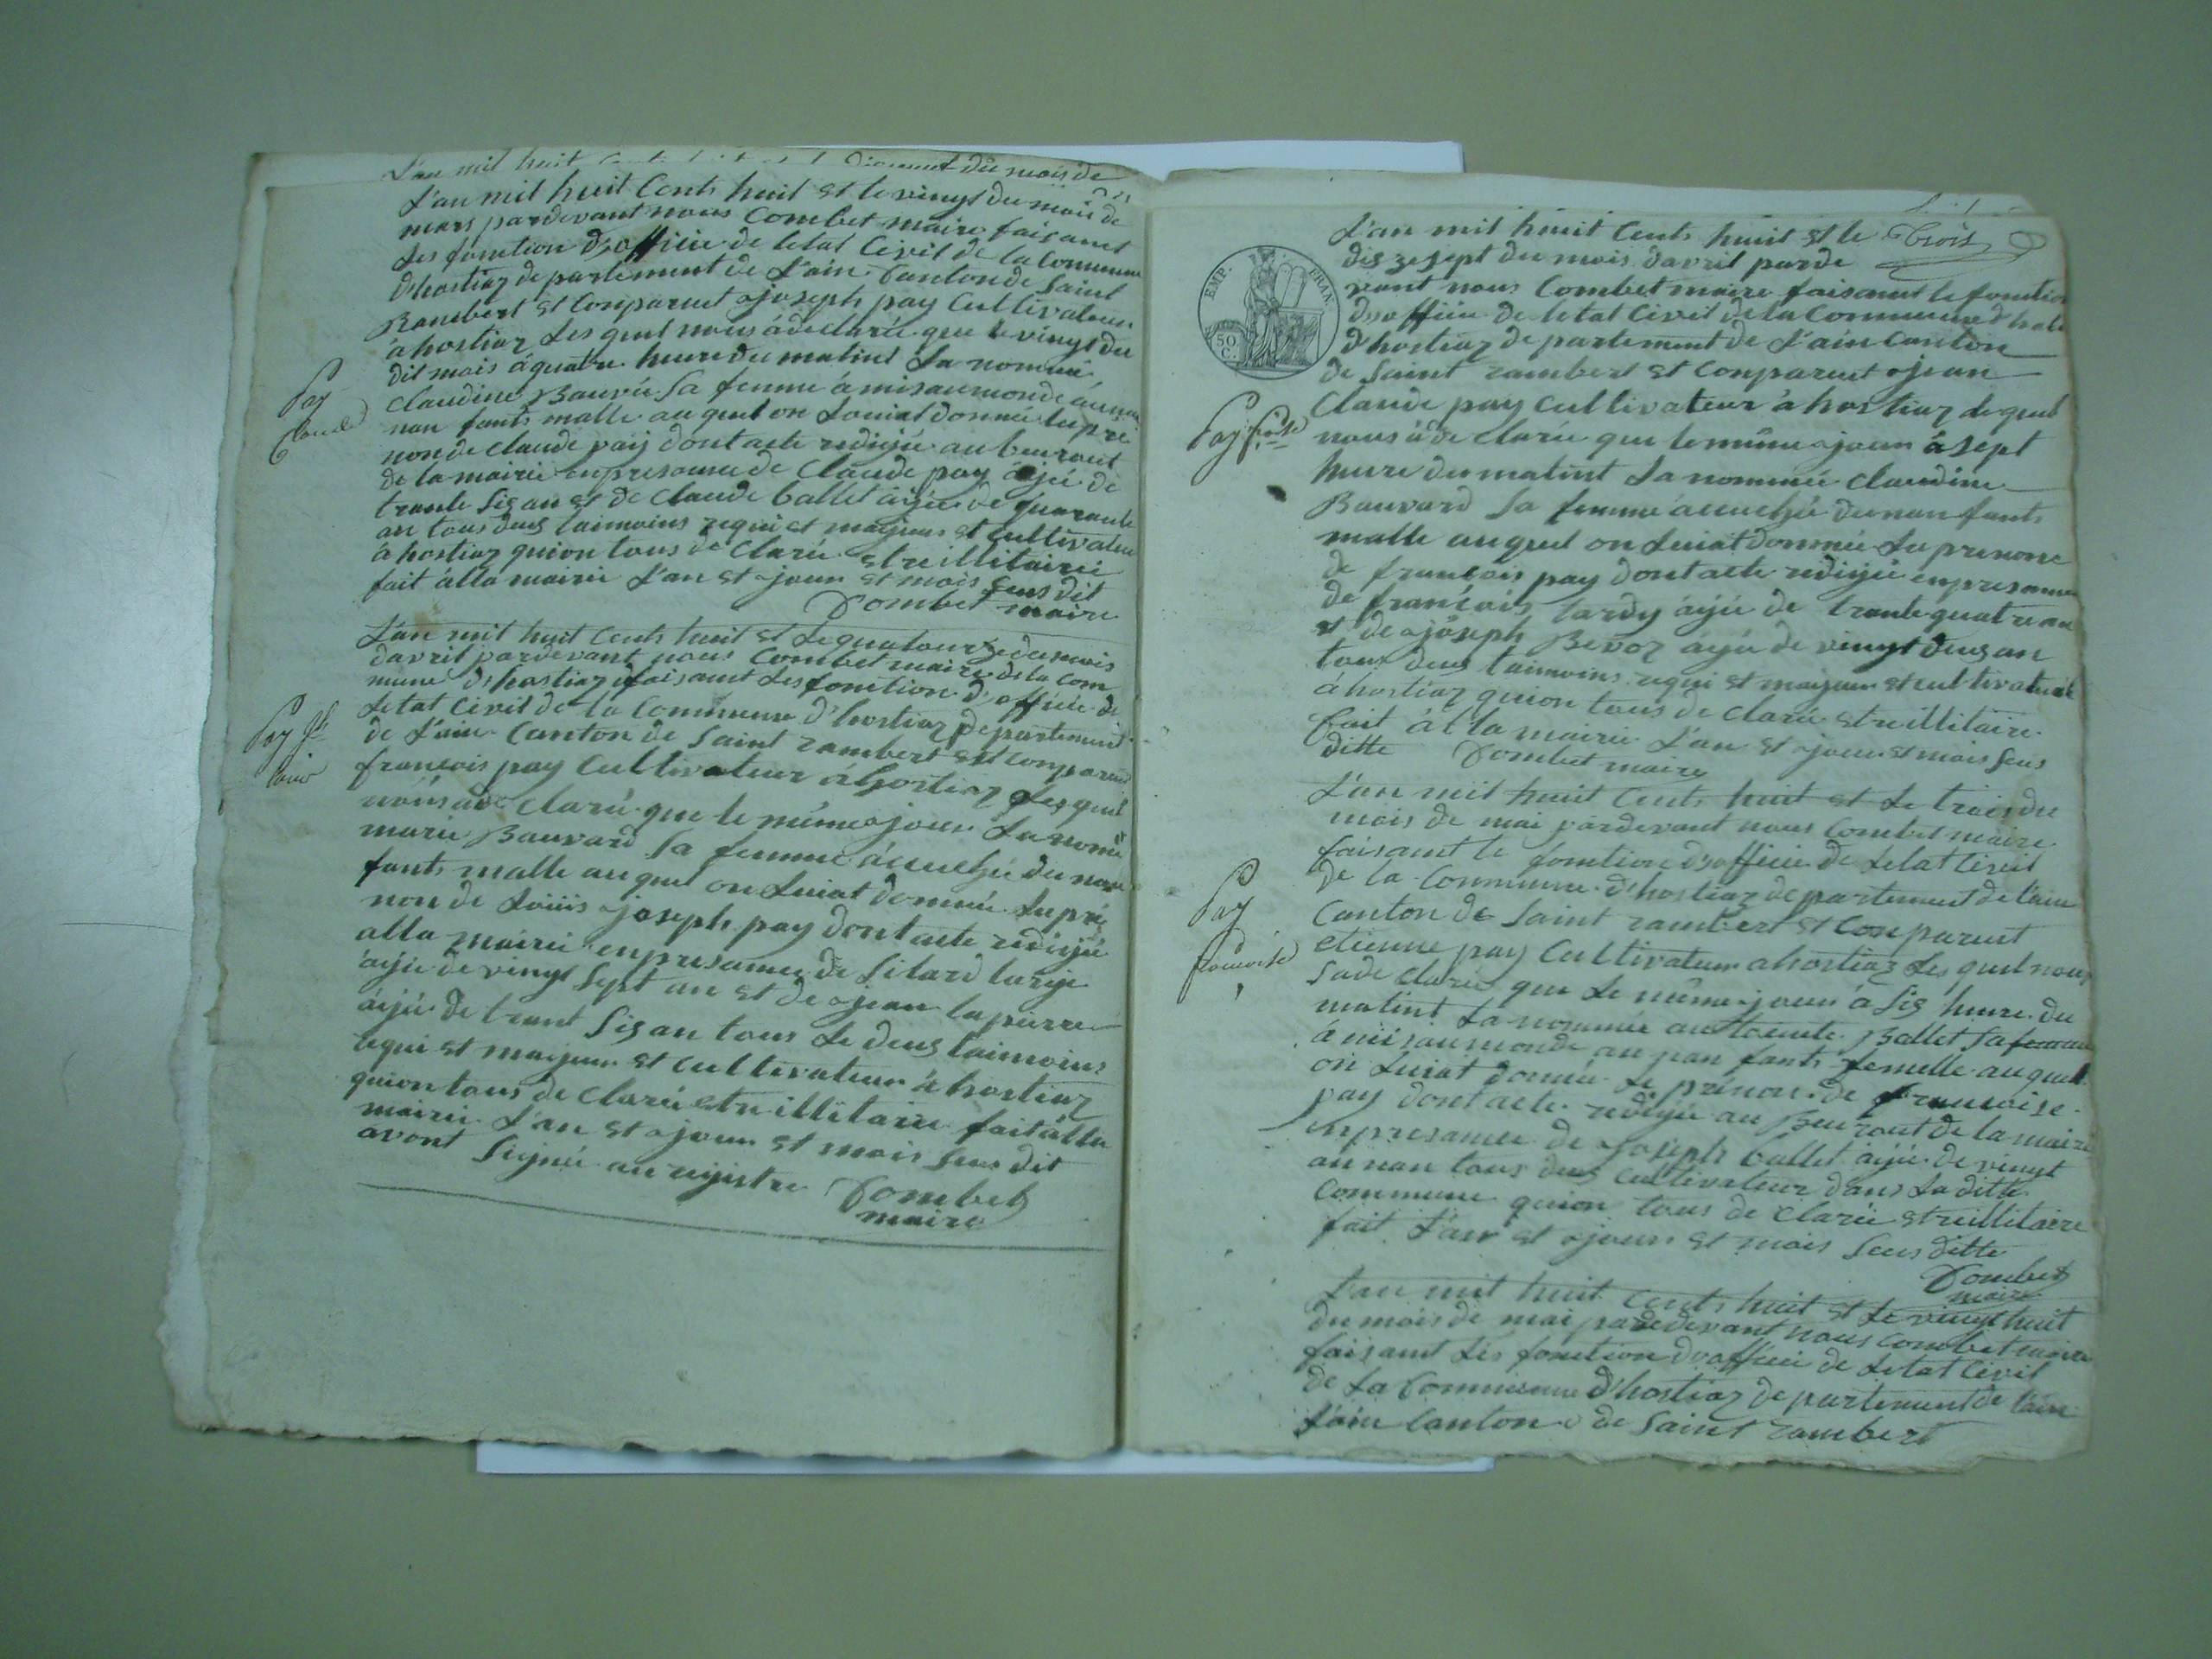 L'an mil huit
du mois de
L'an mil huit Cents huit et le vingt du mois de
mars pardevant nous Combet maire faisant
les fonction d'officie de letat Civil de la Commune
d'hostiaz departement de L'ain Canton de Saint
Rambert et Conparut joseph pay Cultivateur
à hostiaz Les quel nous à declaré que le vingt du
dit mois à quatre heure du matint La nomée
Claudine Bauvé sa femme à mis au monde au
nan fants malle au quel on Louiat donnée lepré
non de Claude pay dont acte redigée au beuraut
de la mairie enpresance de Claude pay âjé de
trante Sis an et de Claude ballet âjée de quarante
an tous deus taimoins requi et majeur et Cultivateur
à hostiaz quion tous de Clarée etre illitairée
fait àlla mairie L'an et jour et mois Seus dit
Combet maire
Pay
Claude
L'an mil huit Cents huit et Le quatourze du mois
davril pardevant nous Combet maire de la Com
mune d'hostiaz faisant Les fonction d'officie de
Letat Civil de la Commune d'hostiaz departement
de L'ain Canton de Saint rambert est Conparut
francois pay Cultivateur à hostiaz Les quel
nous à de Claré que le même jour La nomé
marie Bauvard Sa femme àcuchée du nan
fants malle au quel on Luiat donnée Lepré
non de Louis joseph pay dont acte redigée
alla mairie enpresance de Silard large
âjée de vingt Sept an et de jean lapierre
âijée de trant Sis an tous Le deus taimoins
requi et majeur et Cultivateur à hostiaz
quion tous de Clarée etre illitairée fait àlla
mairie L'an et jour et mois Seus dit
avont Signée au rejistre Combet
maire
Pay Jh
Louis
L'an mil huit Cents huit et le Trois
dis zesept du mois davril parde
vant nous Combet maire faisant le fonction
d'officie de letat Civil de la Commune
d'hostiaz departement de L'ain Canton
de Saint rambert et Conparut jean
Claude pay Cultivateur à hostiaz le quel
nous à de Clarée que le même jour à sept
heure du matint La nommée Claudine
Bauvard Sa femme àcuchée du nan fants
malle au quel on Luiat donnée Le prenom
de francois pay dont acte redigée enpresance
de francois tardy âjée de trante quatre an
et de joseph Bevoz âjée de vingt deus an
tous deus taimoins requi et majeur et cultivateur
à hostiaz quion tous de Clarée etre illitaire
fait àlla mairie L'an et jour et mois Seus
ditte Combet maire
EMP. FRAN.
50
C.
L'an mil huit Cents huit et Le trois du
mois de mai pardevant nous Combet maire
faisant le fonction d'officie de Letat Civil
de la Commune d'hostiaz departement de L'ain
Canton de Saint rambert et Conparut
etienne pay Cultivateur à hostiaz Les quel nous
à de Clarée que Le même jour à Sis heure du
matint La nommée Ballet Sa femme
à mis au monde au nan fants femelle au quel
on Luiat donnée Le prenon de francoise
pay dont acte redigée au Beuraut de la mairie
enpresance de Joseph ballet âjée de vingt
an tous deus Cultivateur dans La ditte
Commune quion tous de Clarée etre illitaire
fait L'an et jour et mois Seus ditte
Combet
maire
Pay
francoise
L'an mil huit Cents huit et Le vingt huit
du mois de mai pardevant nous Combet maire
faisant Les fonction d'officie de Letat Civil
de La Commune d'hostiaz departement de L'ain
L'ain Canton de Saint rambert